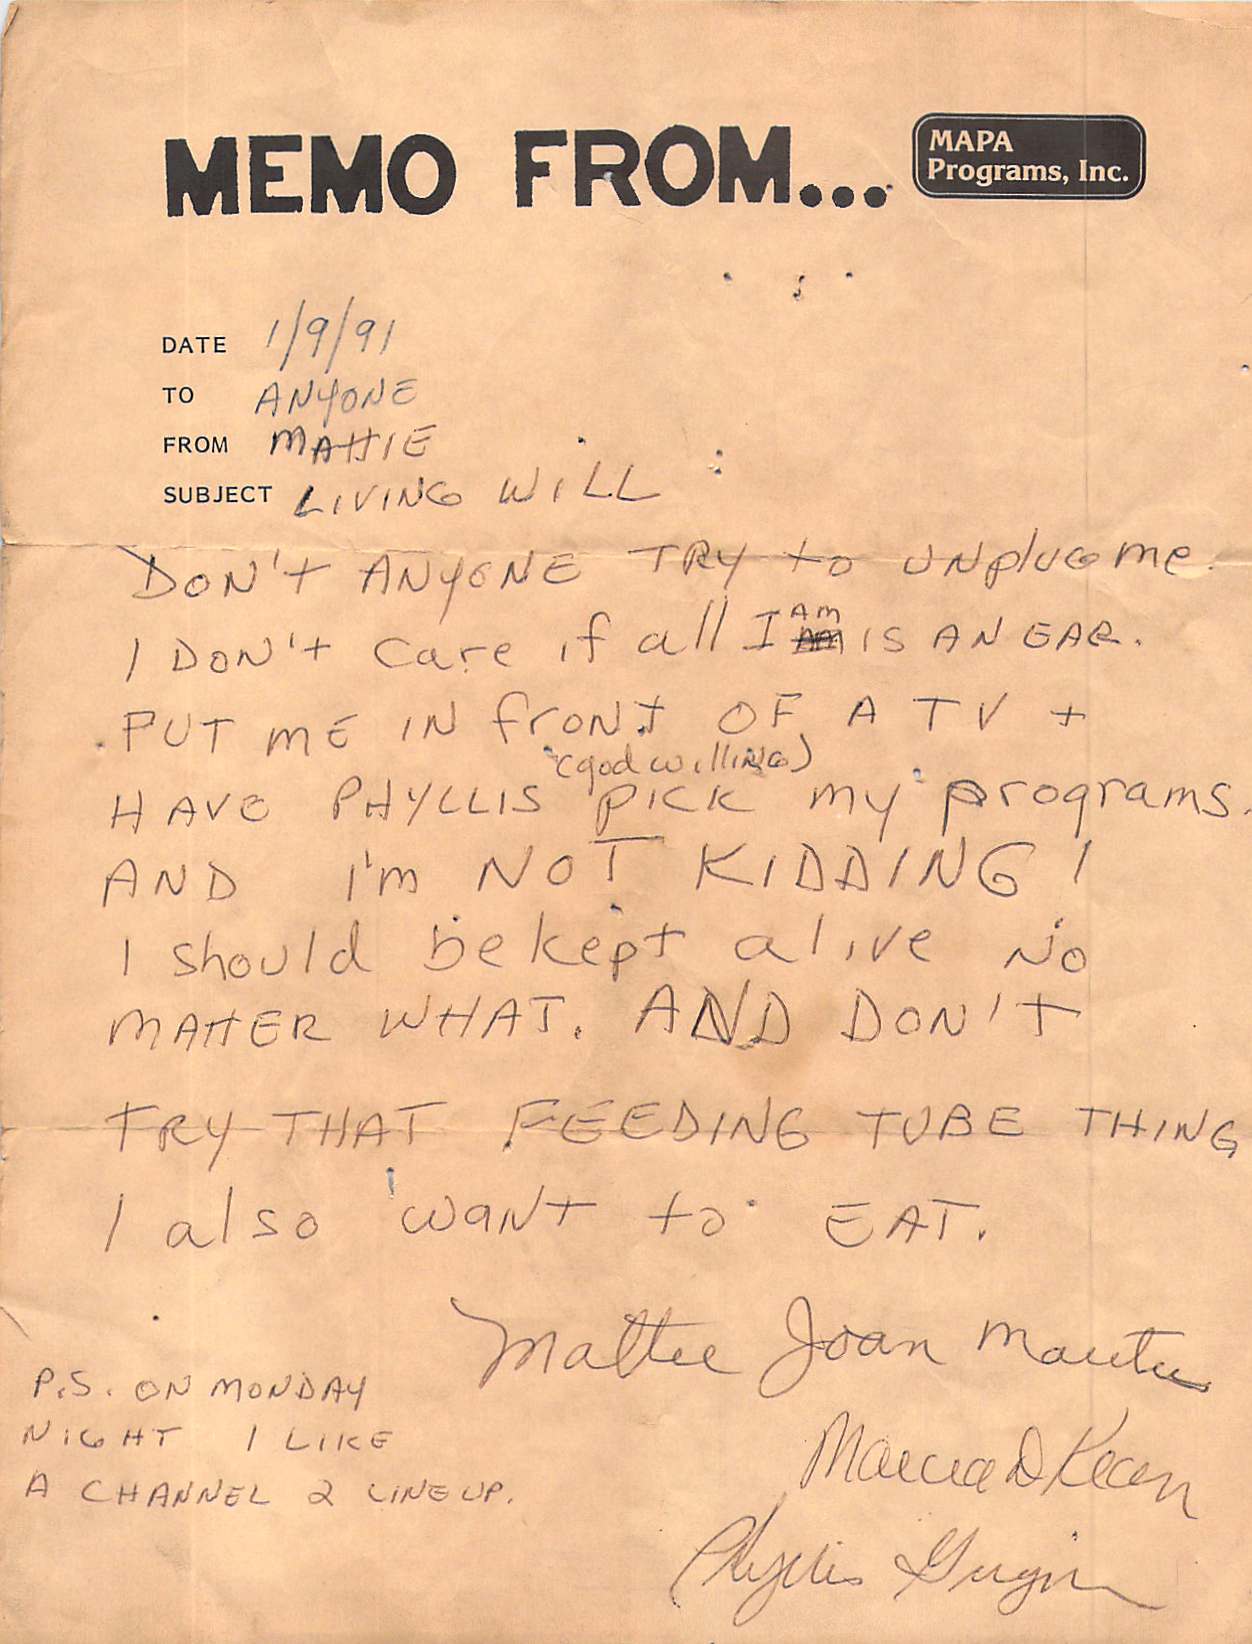 MEMO FROM...
MAPA
Programs, Inc.
DATE 1/9/91
TO ANYONE
FROM MATTIE
SUBJECT LIVING WILL
DON'T ANYONE TRY to UNplug me.
I DON'T care if all I AM IS AN EAR.
PUT ME IN froNt OF A TV +
(god willing)
HAVE PHYLLIS PICK my programs.
AND I'm NOT KIDDING!
I should be kept alive NO
MATTER WHAT. AND DON'T
TRY THAT FEEDING TUBE THING
I also waNt to EAT.
Mattie Joan
P.S. ON MONDAY
NIGHT I LIKE
A CHANNEL 2 LINE UP.
Marcia D
Phyllis